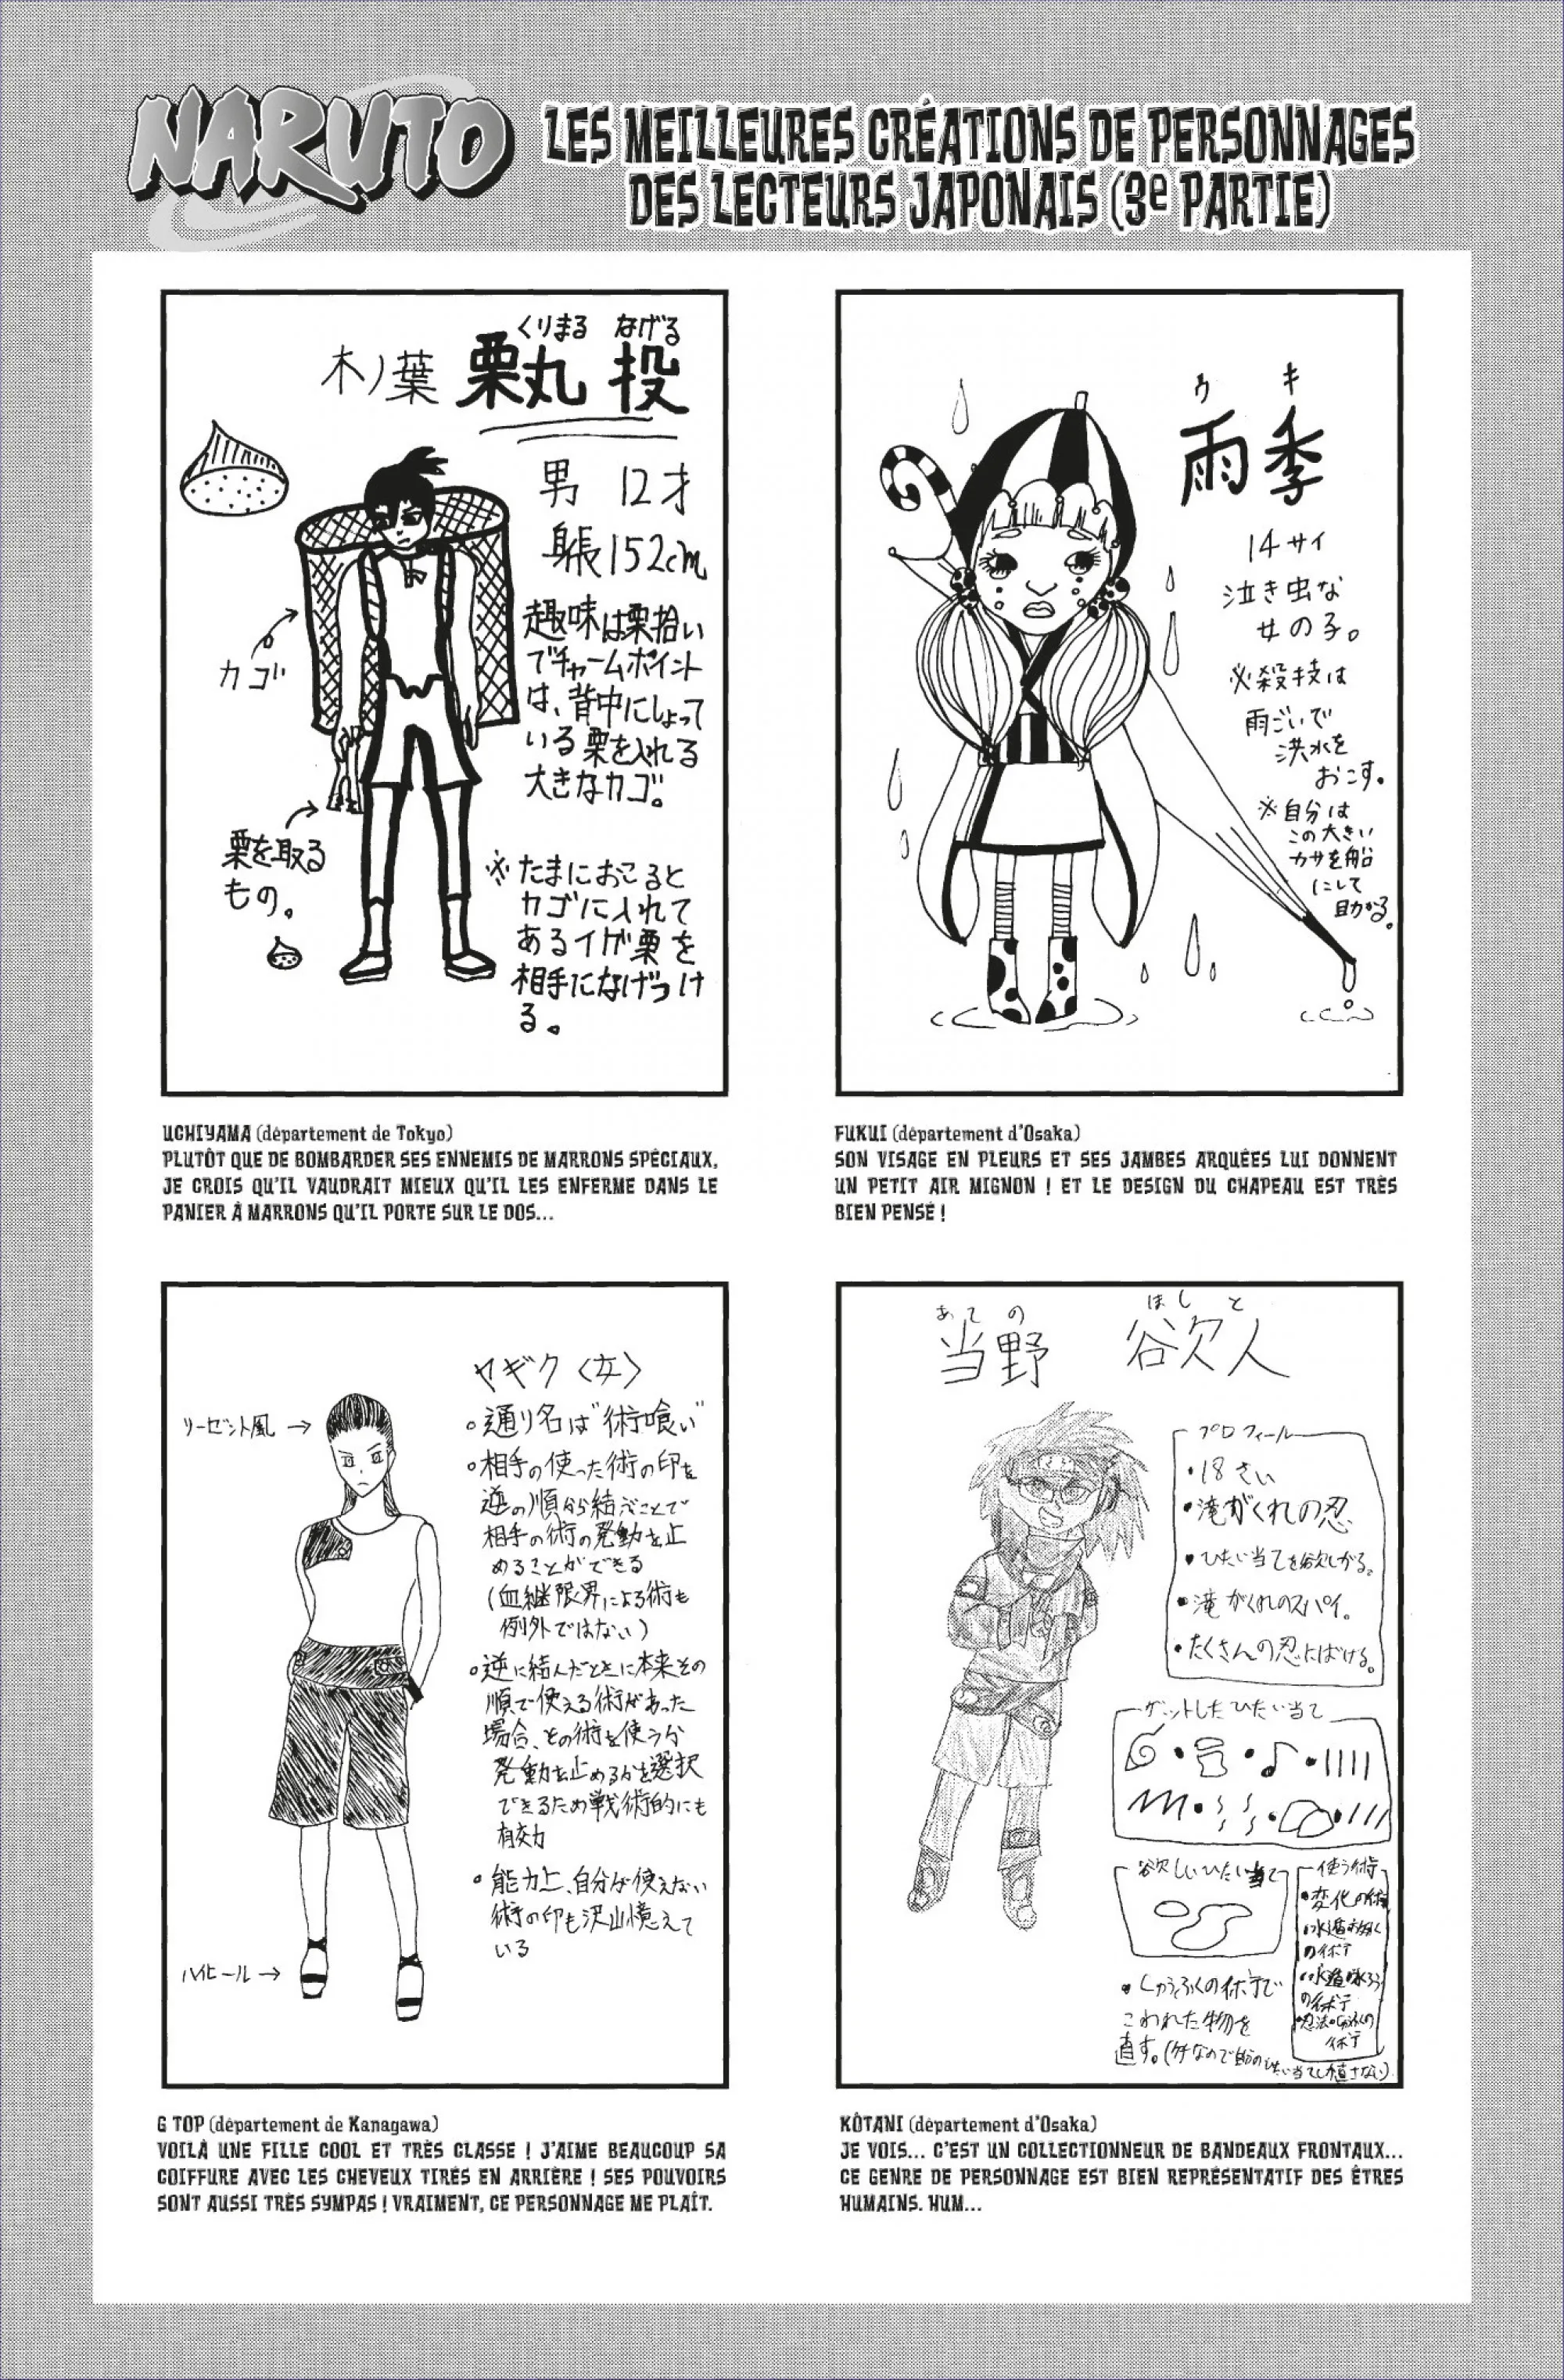 NARUTO
LES MEILLEURES CRÉATIONS DE PERSONNAGES
DES LECTEURS JAPONAIS (3e PARTIE)
くりまる なげる
木ノ葉 栗丸 投
男 12才
身長152cm
趣味は栗拾い
でチャームポイント
は、背中にしょって
いる栗を入れる
大きなカゴ。
カゴ
栗を取る
もの。
※たまにおこると
カゴに入れて
あるイガ栗を
相手になげつけ
る。
ウ キ
雨季
14サイ
泣き虫な
女の子。
必殺技は
雨ごいで
洪水を
おこす。
※自分は
この大きい
カサを船
にして
助かる。
UCHIYAMA (département de Tokyo)
PLUTÔT QUE DE BOMBARDER SES ENNEMIS DE MARRONS SPÉCIAUX,
JE CROIS QU'IL VAUDRAIT MIEUX QU'IL LES ENFERME DANS LE
PANIER À MARRONS QU'IL PORTE SUR LE DOS...
FUKUI (département d'Osaka)
SON VISAGE EN PLEURS ET SES JAMBES ARQUÉES LUI DONNENT
UN PETIT AIR MIGNON ! ET LE DESIGN DU CHAPEAU EST TRÈS
BIEN PENSÉ !
ヤギク〈女〉
リーゼント風→
。通り名は"術喰い"
。相手の使った術の印を
逆の順から結ぶことで
相手の術の発動を止
めることができる
(血継限界による術も
例外ではない)
。逆に結んだときに本来その
順で使える術があった
場合、その術を使うか
発動を止めるかを選択
できるため戦術的にも
有効
。能力上、自分が使えない
術の印も沢山憶えて
いる
ハイヒール→
あ て の はし と
当野 谷欠人
プロフィール
・18さい
・滝がくれの忍
・ひたい当てを欲しがる。
・滝がくれのスパイ。
・たくさんの忍にばける。
ゲットしたひたい当て
欲しいひたい当て
使う術
・変化の術
・しゅうふくの術で
こわれた物を
直す。
G TOP (département de Kanagawa)
VOILÀ UNE FILLE COOL ET TRÈS CLASSE ! J'AIME BEAUCOUP SA
COIFFURE AVEC LES CHEVEUX TIRÉS EN ARRIÈRE ! SES POUVOIRS
SONT AUSSI TRÈS SYMPAS ! VRAIMENT, CE PERSONNAGE ME PLAÎT.
KÔTANI (département d'Osaka)
JE VOIS... C'EST UN COLLECTIONNEUR DE BANDEAUX FRONTAUX...
CE GENRE DE PERSONNAGE EST BIEN REPRÉSENTATIF DES ÊTRES
HUMAINS. HUM...